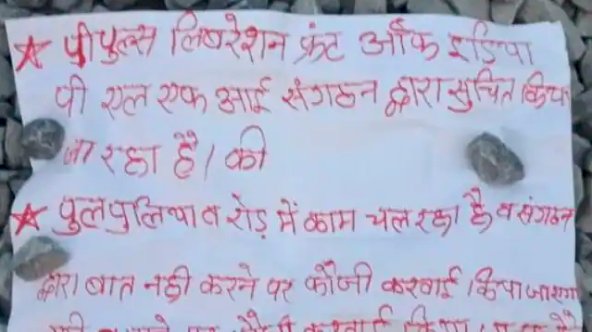 ★ पीपुल्स लिबरेशन फ्रंट ऑफ इंडिया
पी एल एफ आई संगठन द्वारा सुचित किया
जा रहा है। की
★ पुलपुलिया व रोड़ में काम चल रहा है व संगठन
द्वारा बात नही करने पर फौजी करवाई किया जाएगा